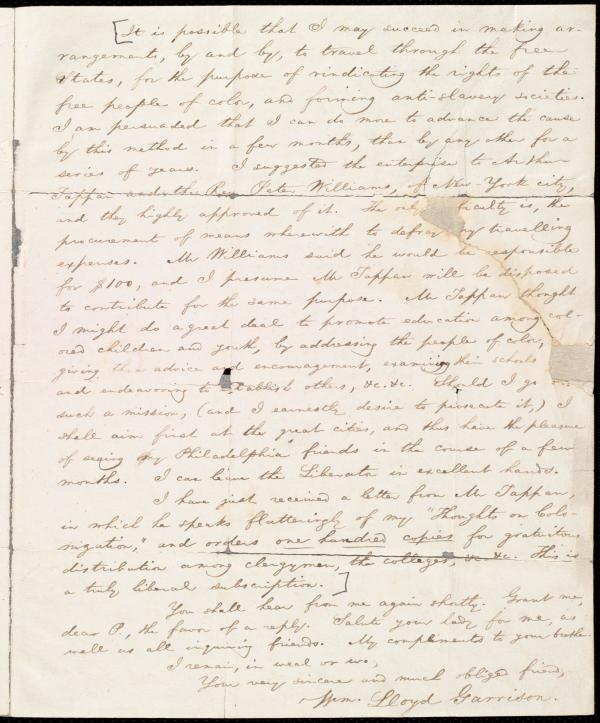 [It is possible that I may succeed in making ar-
rangements, by and by, to travel through the free
States, for the purpose of vindicating the rights of the
free people of color, and forming anti-slavery societies.
I am persuaded that I can do more to advance the cause
by this method in a few months, than by any other for a
series of years. I suggested the enterprise to Arthur
Tappan and the Rev. Peter Williams, of New-York city,
and they highly approved of it. The only difficulty is, the
procurement of means wherewith to defray my travelling
expenses. Mr Williams said he would be responsible
for $100, and I presume Mr Tappan will be disposed
to contribute for the same purpose. Mr Tappan thought
I might do a great deal to promote education among col-
ored children and youth, by addressing the people of color,
giving them advice and encouragement, examining their schools
and endeavoring to establish others, &c. &c. Should I go on
such a mission, (and I earnestly desire to prosecute it,) I
shall aim first at the great cities, and thus have the pleasure
of seeing my Philadelphia friends in the course of a few
months. I can leave the Liberator in excellent hands.
I have just received a letter from Mr Tappan,
in which he speaks flatteringly of my "Thoughts on Colo-
nization," and orders one hundred copies for gratuitous
distribution among clergymen, the colleges, &c. &c. This is
a truly liberal subscription.]
You shall hear from me again shortly. Grant me,
dear P., the favor of a reply. Salute your lady for me, as
well as all inquiring friends. My compliments to your brother.
I remain, in weal or wo,
Your very sincere and much obliged friend,
Wm. Lloyd Garrison.